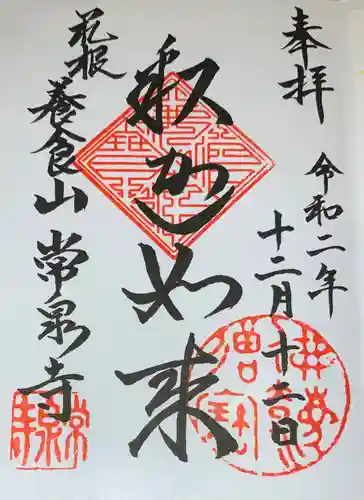 奉拝
令和二年
十二月十二日
釈迦如来
花報
養食山常泉寺